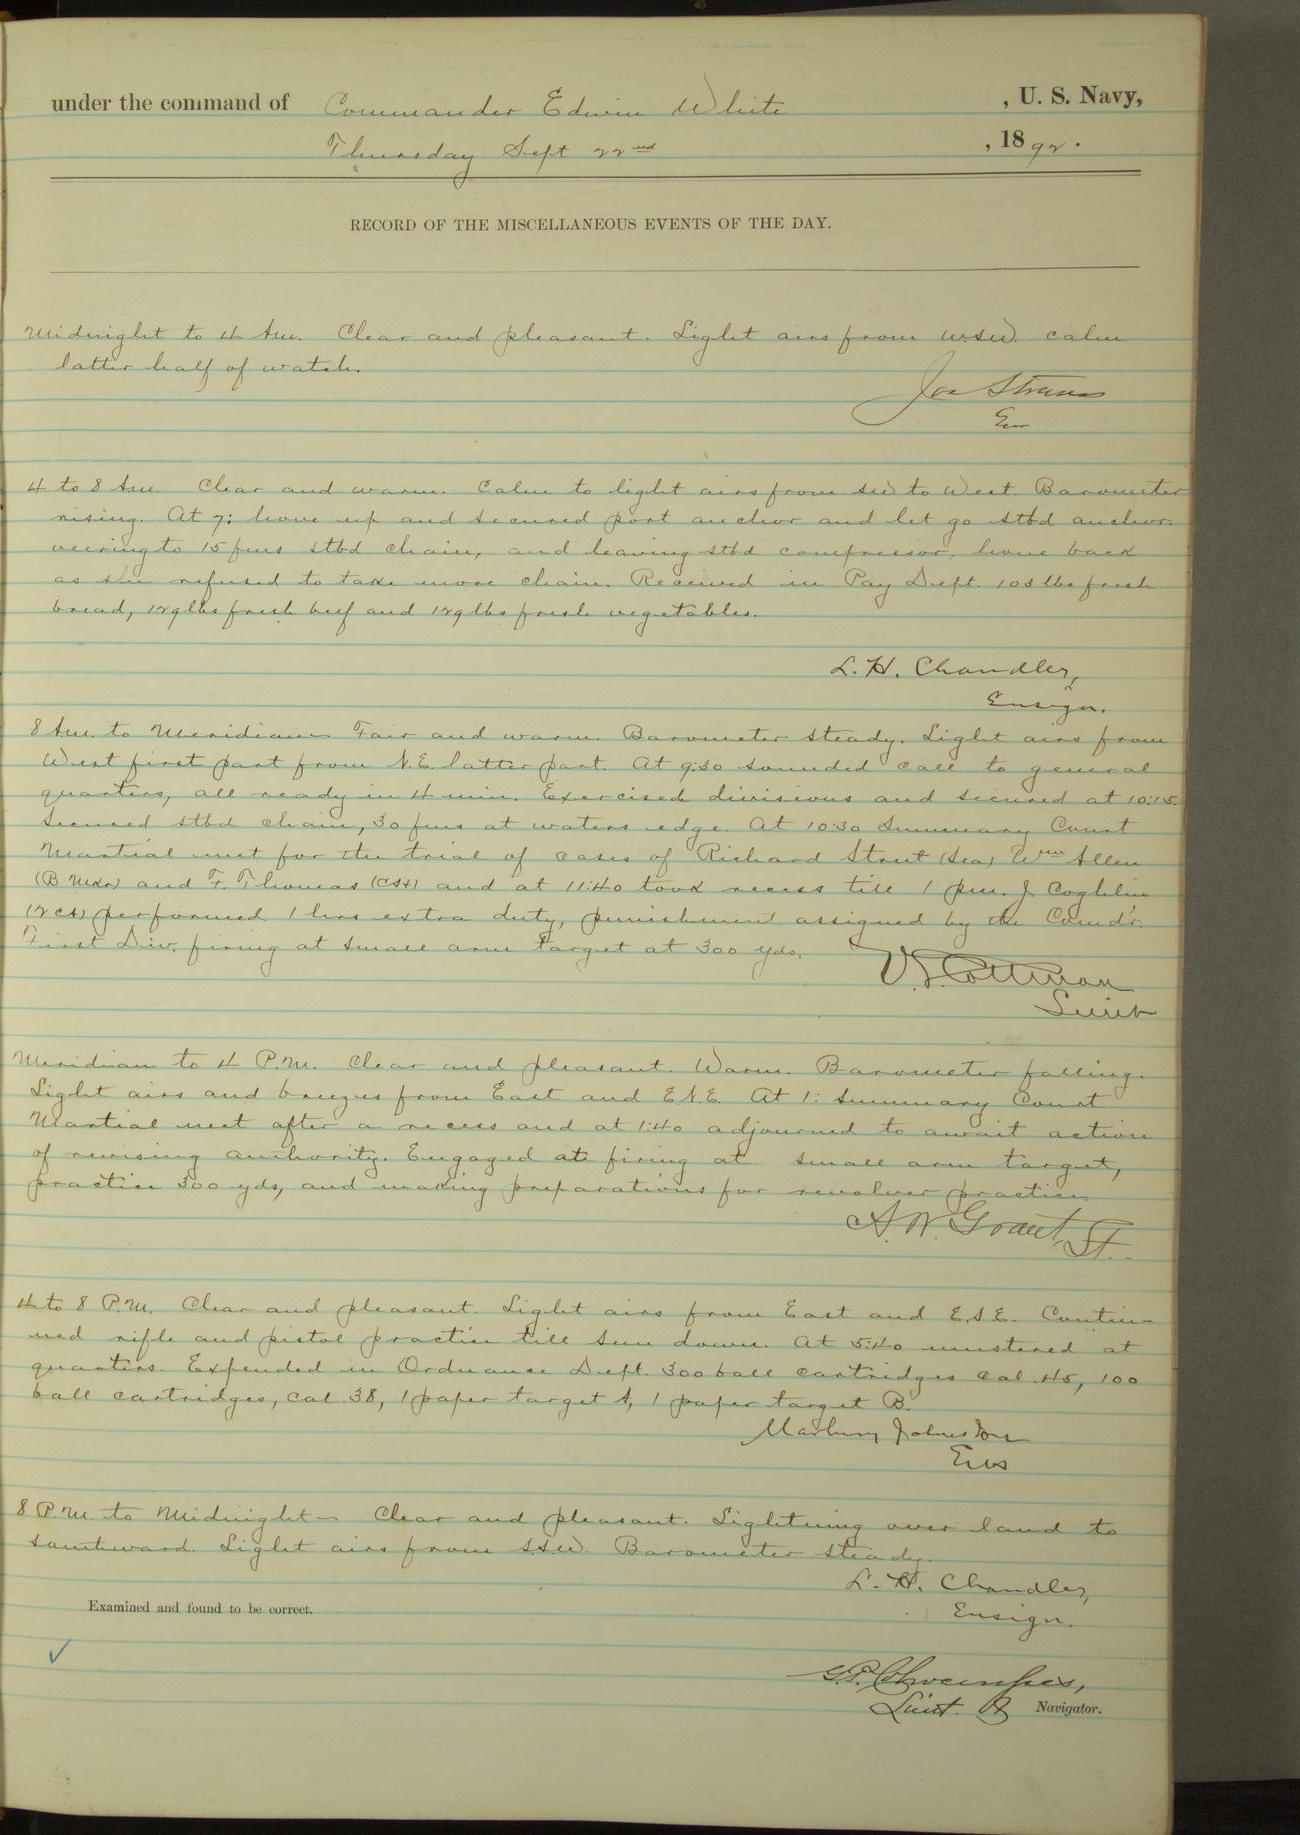 under the command of Commander Edwin White , U. S. Navy,
Thursday Sept 22nd , 1892.
RECORD OF THE MISCELLANEOUS EVENTS OF THE DAY.
Midnight to 4 Am. Clear and pleasant. Light airs from WSW. calm
latter half of watch.
Jos Strauss
Ens
4 to 8 Am. Clear and warm. Calm to light airs from SW to West. Barometer
rising. At 7: hove up and secured port anchor and let go stbd anchor.
veering to 15 fms stbd chain, and leaving stbd compressor, hove back
as she refused to take more chain. Received in Pay Dept. 103 lbs fresh
bread, 129 lbs fresh beef and 129 lbs fresh vegetables.
L. H. Chandler,
Ensign.
8 Am. to Meridian Fair and warm. Barometer steady. Light airs from
West first part from N.E. latter part. At 9:30 sounded call to general
quarters, all ready in 4 min. Exercised divisions and secured at 10:15
Secured stbd chain, 30 fms at waters edge. At 10:30 Summary Court
Martial met for the trial of cases of Richard Street (Sea) Wm Allen
and F. Thomas and at 11:40 took recess till 1 pm. J. Coghlin
performed 1 hrs extra duty, punishment assigned by the Comd'r.
First Div. firing at small arm target at 300 yds.
V. S. Cottman
Lieut
Meridian to 4 P.M. Clear and pleasant. Warm. Barometer falling.
Light airs and breezes from East and E.N.E. At 1: Summary Court
Martial met after a recess and at 1:40 adjourned to await action
of revising authority. Engaged at firing at small arm target,
practice 300 yds, and making preparations for revolver practice.
A. W. Grant, Lt.
4 to 8 P.M. Clear and pleasant. Light airs from East and E.S.E. Contin-
ued rifle and pistol practice till sun down. At 5:40 mustered at
quarters. Expended in Ordnance Dept. 300 ball cartridges cal .45, 100
ball cartridges, cal .38, 1 paper target A, 1 paper target B.
Marbury Johnston
Ens
8 P.M. to Midnight - Clear and pleasant. Lightning over land to
Southward. Light airs from S.S.W. Barometer steady.
L. H. Chandler,
Ensign.
Examined and found to be correct.
Lieut. Navigator.